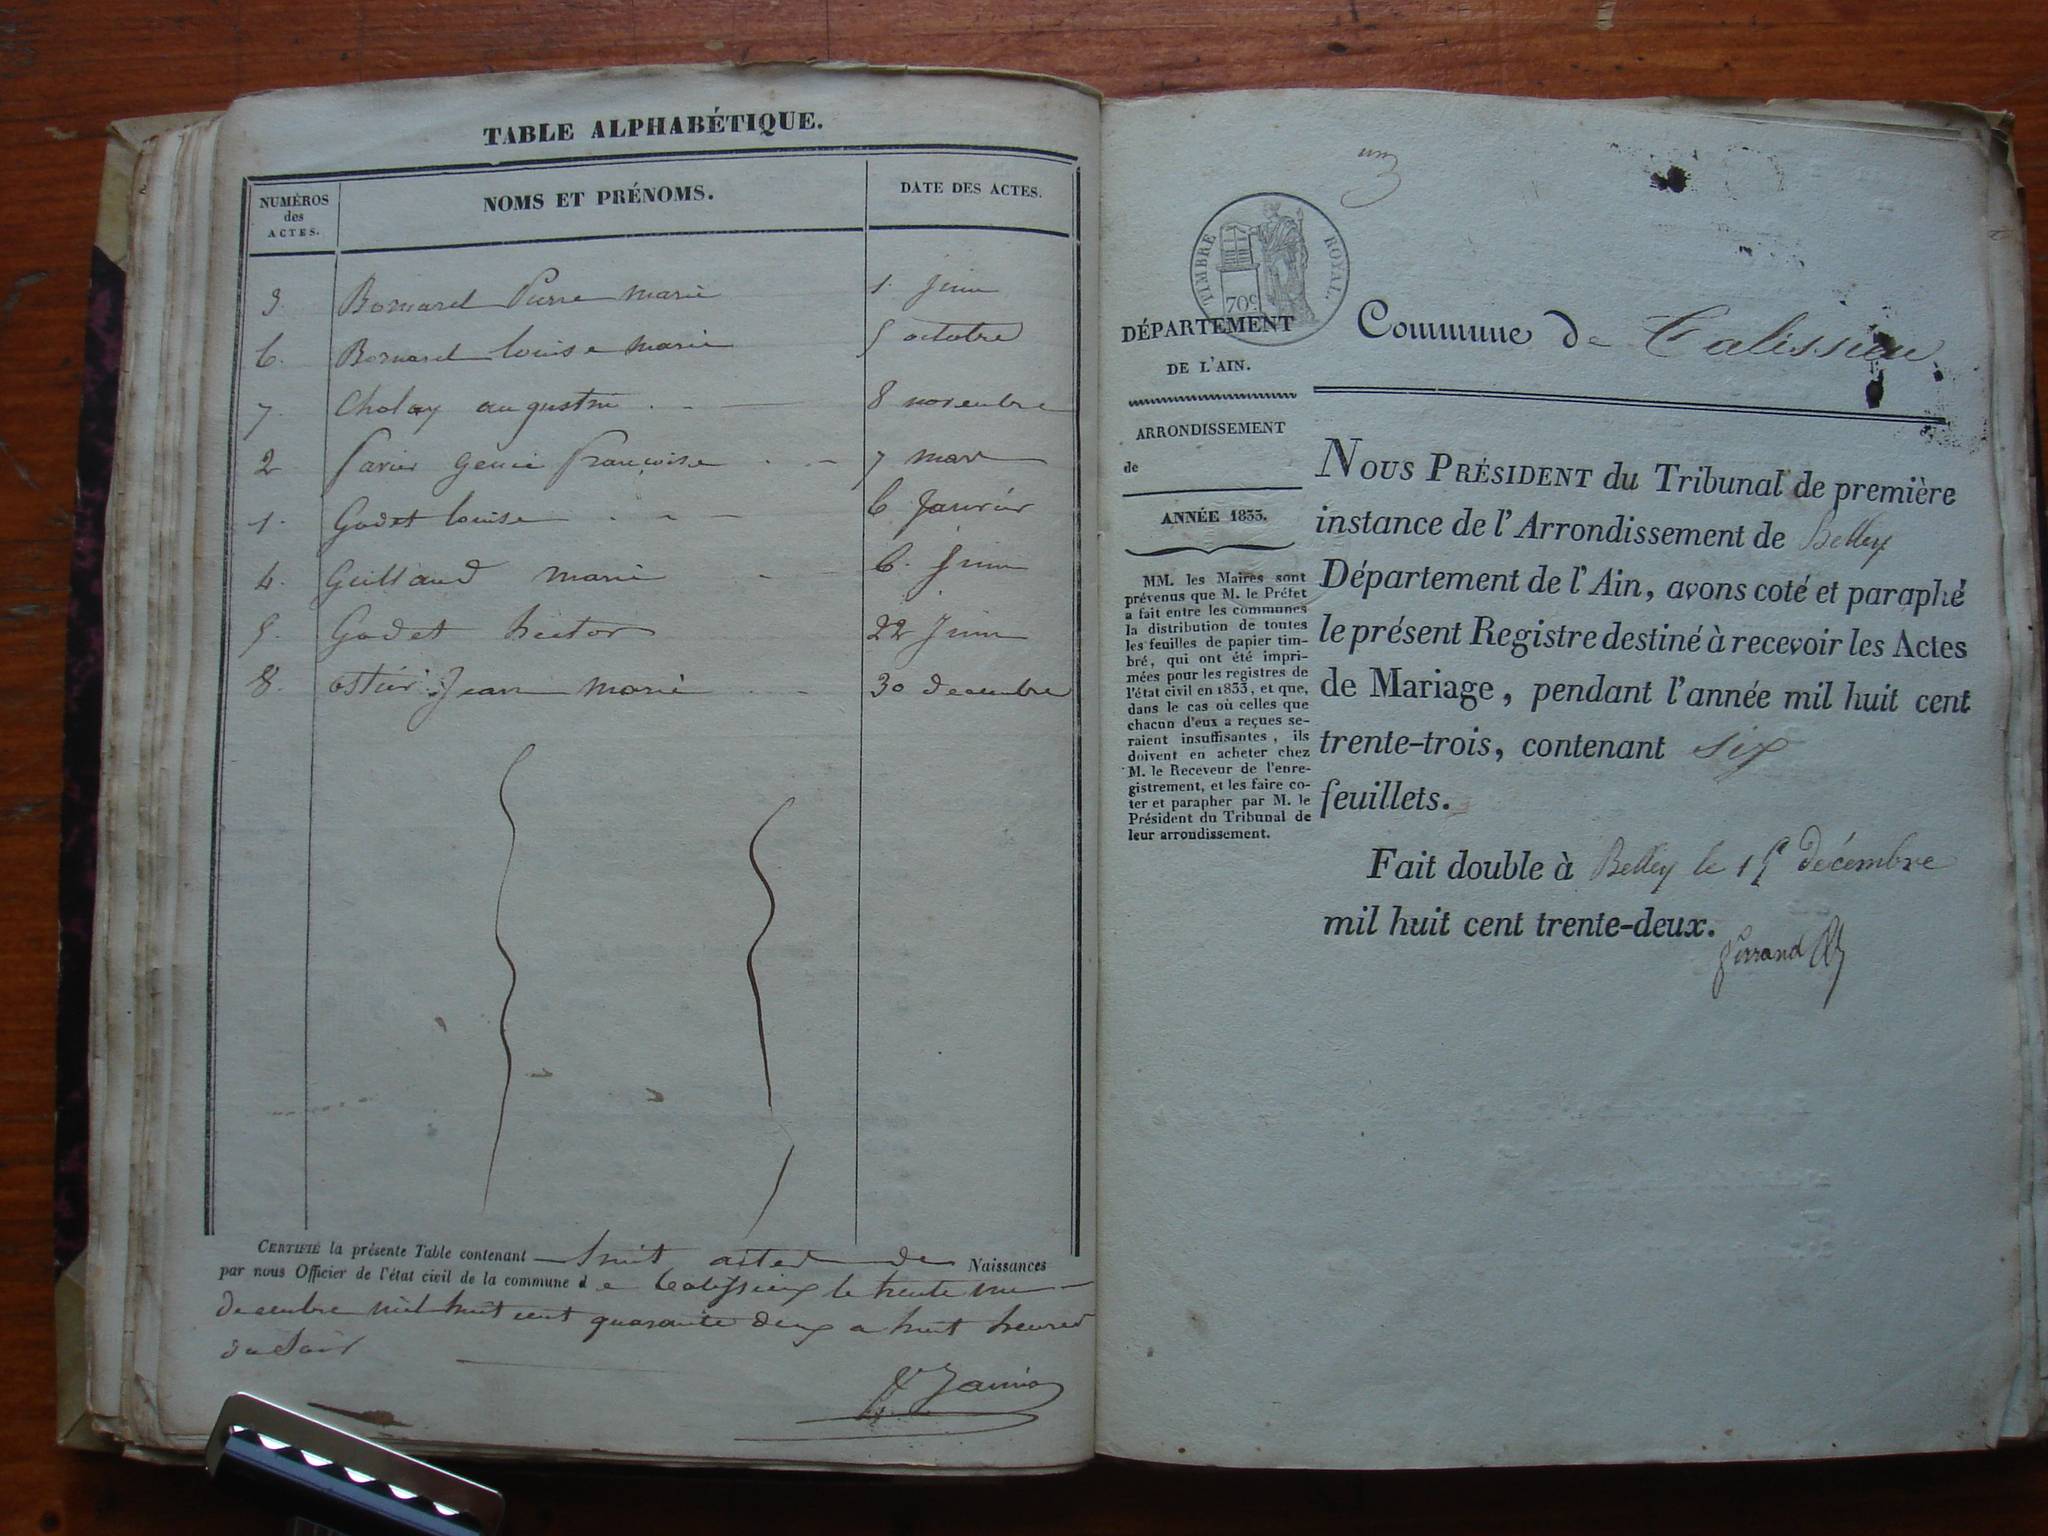 TABLE ALPHABÉTIQUE.
NUMÉROS
des
ACTES.
NOMS ET PRÉNOMS.
DATE DES ACTES.
3. Bornard Pierre marie 1. juin
6. Bornard louise marie 5 octobre
7. Cholay augustin 8 novembre
2 françoise 7 mars
1. Godet louise 6 Janvier
4. Guillaud marie 6. Juin
5. Godet hector 22 Juin
8. ostier Jean marie 30 decembre
CERTIFIÉ la présente Table contenant huit actes de Naissances
par nous Officier de l'état civil de la commune de Talissieux le trente un
decembre mil huit cent quarante deux a huit heures
du Soir
un
TIMBRE ROYAL.
70c
DÉPARTEMENT
DE L'AIN.
ARRONDISSEMENT
de
ANNÉE 1833.
MM. les Maires sont
prévenus que M. le Préfet
a fait entre les communes
la distribution de toutes
les feuilles de papier tim-
bré, qui ont été impri-
mées pour les registres de
l'état civil en 1833, et que,
dans le cas où celles que
chacun d'eux a reçues se-
raient insuffisantes, ils
doivent en acheter chez
M. le Receveur de l'enre-
gistrement, et les faire co-
ter et parapher par M. le
Président du Tribunal de
leur arrondissement.
Commune de Talissieu
NOUS PRÉSIDENT du Tribunal de première
instance de l'Arrondissement de Belley
Département de l'Ain, avons coté et paraphé
le présent Registre destiné à recevoir les Actes
de Mariage, pendant l'année mil huit cent
trente-trois, contenant six
feuillets.
Fait double à Belley le 15 décembre
mil huit cent trente-deux.